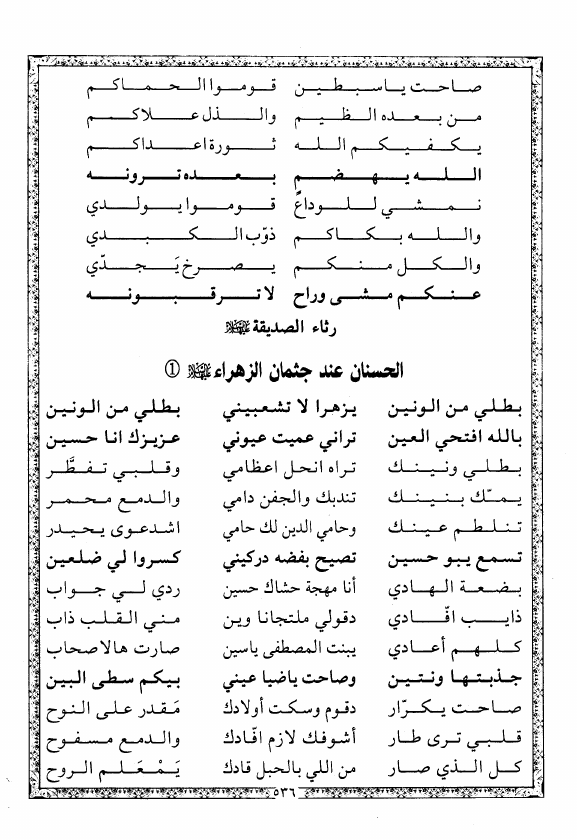 صاحت ياسبطين قوموا الحماكم
من بعده الظيم والذل علاكم
يكفيكم الله ثورة اعداكم
الله يهضم بعده ترونه
نمشي للوداع قوموا يولدي
والله بكاكم ذوّب الكبدي
والكل منكم يصرخ يَجدّي
عنكم مشى وراح لا ترقبونه
رثاء الصديقة
الحسنان عند جثمان الزهراء ①
بطلي من الونين يزهرا لا تشعبيني بطلي من الونين
بالله افتحي العين تراني عميت عيوني عزيزك انا حسين
بطلي ونينك تراه انحل اعظامي وقلبي تفطَّر
يمّك بنينك تندبك والجفن دامي والدمع محمر
تنلطم عينك وحامي الدين لك حامي اشدعوى يحيدر
تسمع يبو حسين تصيح بفضه دركيني كسروا لي ضلعين
بضعة الهادي أنا مهجة حشاك حسين ردي لي جواب
ذايب افّادي دقولي ملتجانا وين مني القلب ذاب
كلهم أعادي يبنت المصطفى ياسين صارت هالاصحاب
جذبتها ونتين وصاحت ياضيا عيني بيكم سطى البين
صاحت يكرّار دقوم وسكت أولادك مَقدر على النوح
قلبي ترى طار أشوفك لازم افّادك والدمع مسفوح
كل الذي صار من اللي بالحبل قادك يَمْعلم الروح
٥٣٦